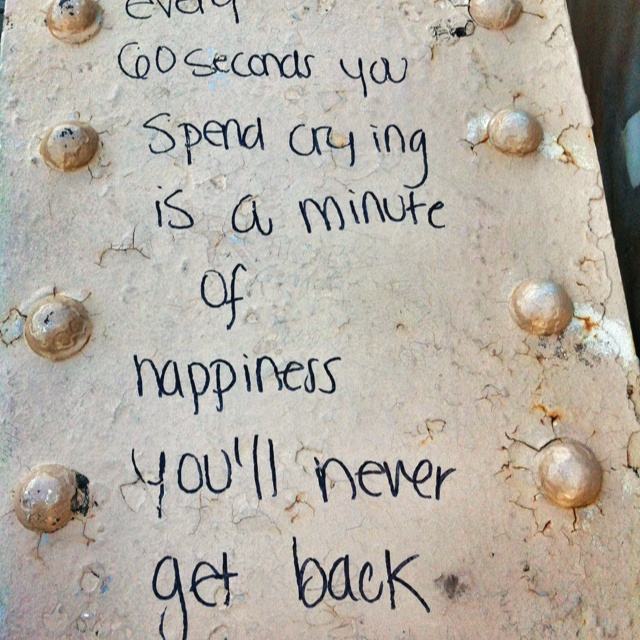 every
60 seconds you
spend crying
is a minute
of
happiness
you'll never
get back